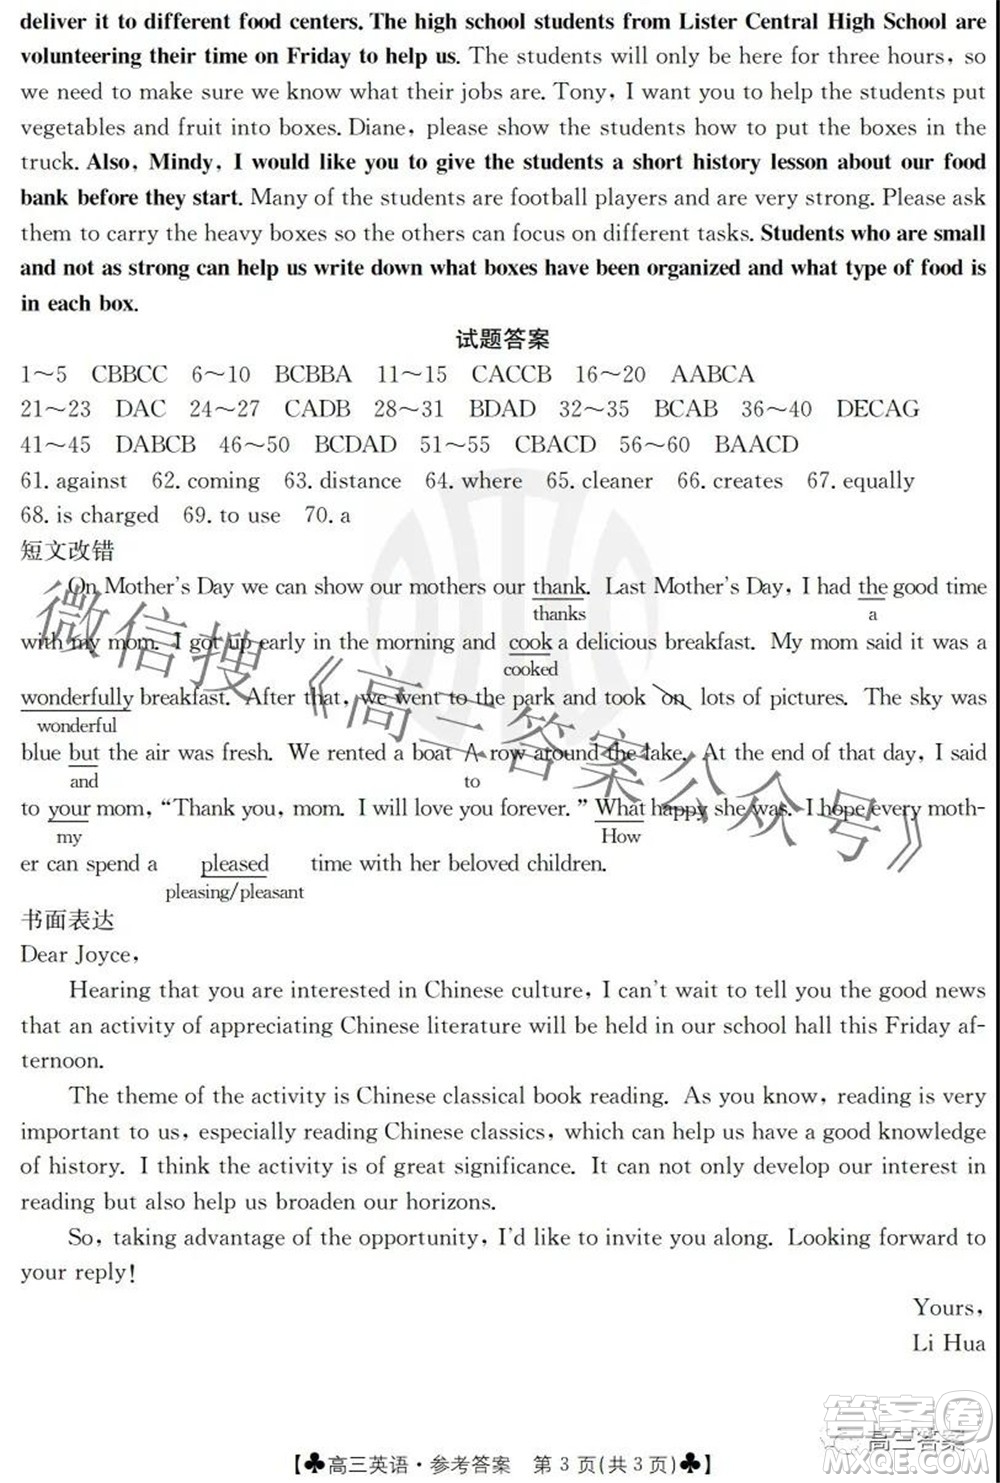 deliver it to different food centers. The high school students from Lister Central High School are
volunteering their time on Friday to help us. The students will only be here for three hours, so
we need to make sure we know what their jobs are. Tony, I want you to help the students put
vegetables and fruit into boxes. Diane, please show the students how to put the boxes in the
truck. Also, Mindy, I would like you to give the students a short history lesson about our food
bank before they start. Many of the students are football players and are very strong. Please ask
them to carry the heavy boxes so the others can focus on different tasks. Students who are small
and not as strong can help us write down what boxes have been organized and what type of food is
in each box.
试题答案
1～5 CBBCC 6～10 BCBBA 11～15 CACCB 16～20 AABCA
21～23 DAC 24～27 CADB 28～31 BDAD 32～35 BCAB 36～40 DECAG
41～45 DABCB 46～50 BCDAD 51～55 CBACD 56～60 BAACD
61. against 62. coming 63. distance 64. where 65. cleaner 66. creates 67. equally
68. is charged 69. to use 70. a
短文改错
On Mother's Day we can show our mothers our thank. Last Mother's Day, I had the good time
thanks a
with my mom. I got up early in the morning and cook a delicious breakfast. My mom said it was a
cooked
wonderfully breakfast. After that, we went to the park and took on lots of pictures. The sky was
wonderful
blue but the air was fresh. We rented a boat ∧ row around the lake. At the end of that day, I said
and to
to your mom, “Thank you, mom. I will love you forever.” What happy she was. I hope every moth-
my How
er can spend a pleased time with her beloved children.
pleasing/pleasant
书面表达
Dear Joyce,
Hearing that you are interested in Chinese culture, I can't wait to tell you the good news
that an activity of appreciating Chinese literature will be held in our school hall this Friday af-
ternoon.
The theme of the activity is Chinese classical book reading. As you know, reading is very
important to us, especially reading Chinese classics, which can help us have a good knowledge
of history. I think the activity is of great significance. It can not only develop our interest in
reading but also help us broaden our horizons.
So, taking advantage of the opportunity, I'd like to invite you along. Looking forward to
your reply!
Yours,
Li Hua
【♣高三英语·参考答案 第 3 页(共 3 页)♣】
微信搜《高三答案公众号》
答案圈
高三答案
MXQE.COM